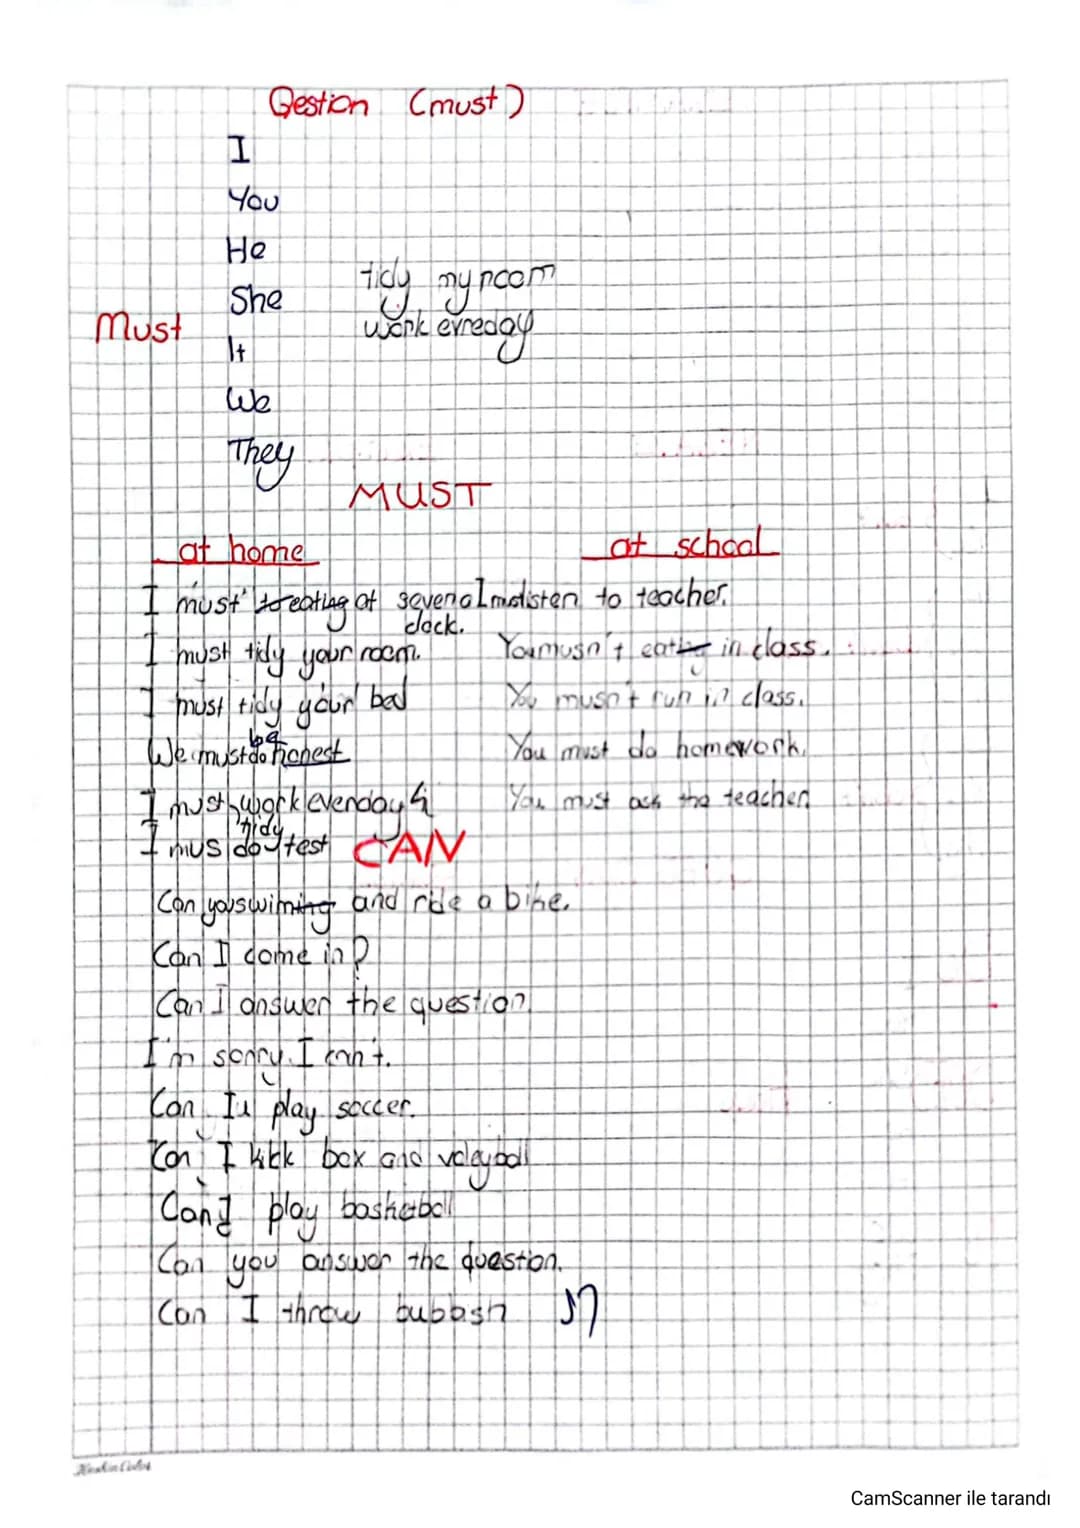 Qestion (must)
I
You
He
She
Must
It
We
They
tidy my room
work evreday
MUST
at home
I must to eating at seven o
clock.
I must tidy your room.
I must tidy your bed
We must do be honest
I must work everday
I mus do tidy test
at school
I must listen to teacher.
You musn't eating in class.
You musn't run in class.
You must do homework.
You must ask the teacher
CAN
Can you swiming and ride a bike.
Can I come in?
Can I answer the question
I'm sorry. I can't.
Can I play soccer.
Can I kick box and voleyball
Can I play basketball
Can you answer the question.
Can I throw bubbish
CamScanner ile tarandı